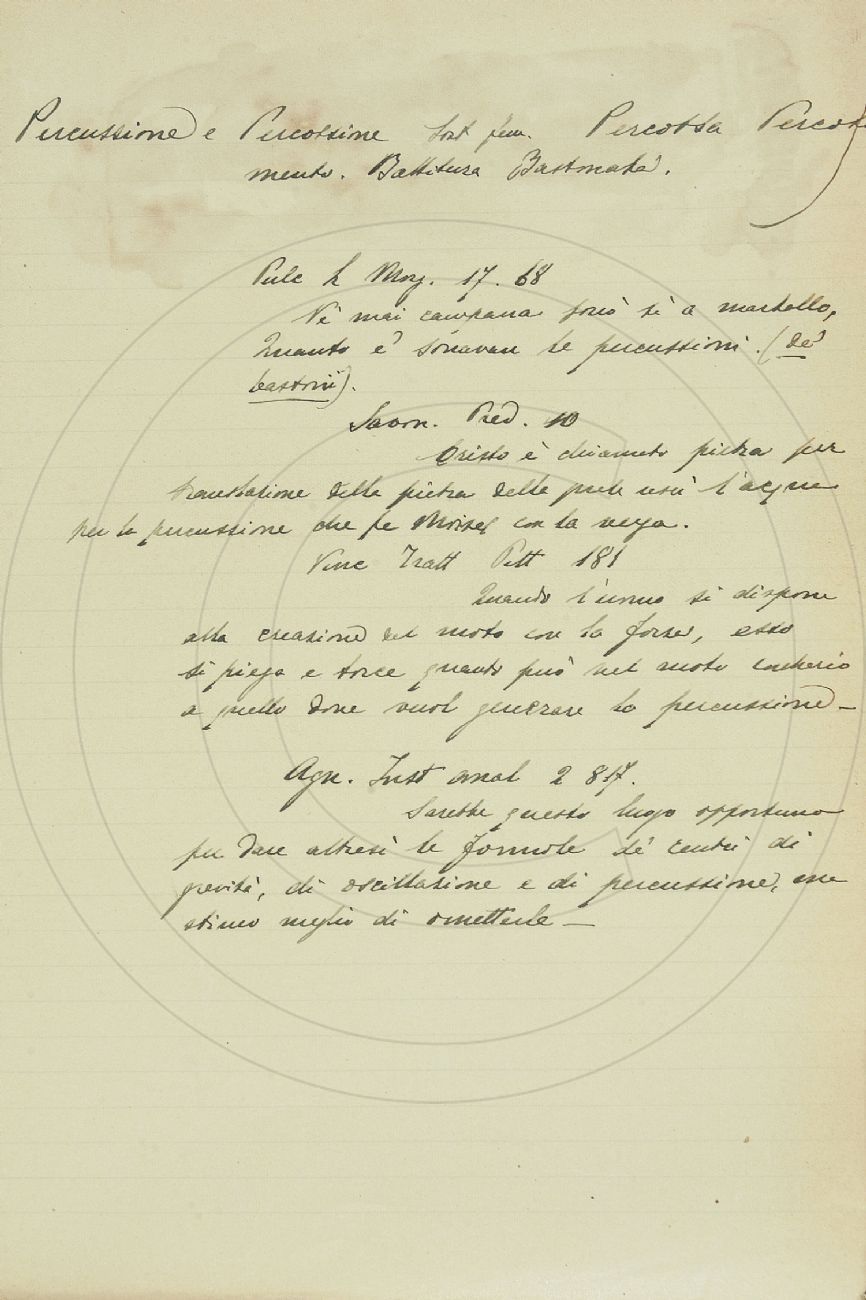 Percussione e Percossione Sost fem. Percossa Percoti
mento. Battitura Bastonata.
Pulc L. Morg. 17. 68
Nè mai campana sonò sì a martello,
Quanto e' sonavan le percussioni. (de'
bastoni).
Savon. Pred. 10
Cristo è chiamato pietra per
translazione della pietra dalla quale uscì l'acqua
per la percussione che fe Moises con la verga.
Vinc Tratt Pitt 181
Quando l'uomo si dispone
alla creazione del moto con la forza, esso
si piega e torce quanto può nel moto contrario
a quello dove vuol generare la percussione —
Agn. Inst anal 2 817.
Sarebbe questo luogo opportuno
per dare altresì le formole de' centri di
gravità, di oscillazione e di percussione, ma
stimo meglio di ometterle —